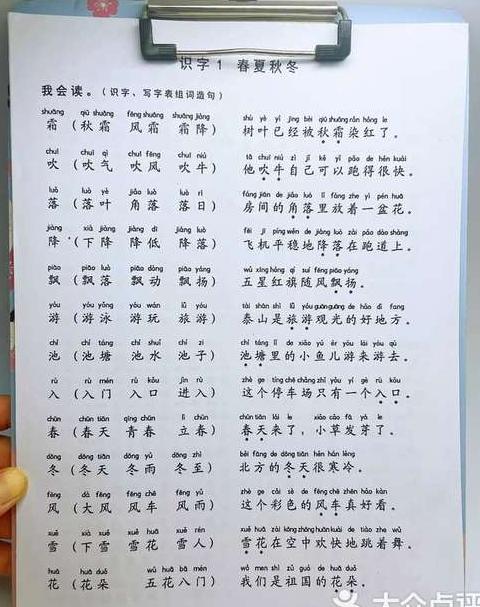 识字1 春夏秋冬
我会读。(识字、写字表组词造句)
shuāng qiū shuāng fēng shuāng shuāng jiàng shù yè yǐ jīng bèi qiū shuāng rǎn hóng le
霜(秋霜 风霜 霜降) 树叶已经被秋霜染红了。
chuī chuī qì chuī fēng chuī niú tā chuī niú zì jǐ kě yǐ pǎo de hěn kuài
吹(吹气 吹风 吹牛) 他吹牛自己可以跑得很快。
luò luò yè jiǎo luò luò rì fáng jiān de jiǎo luò lǐ fàng zhe yì pén huā
落(落叶 角落 落日) 房间的角落里放着一盆花。
jiàng xià jiàng jiàng dī jiàng luò fēi jī píng wěn de jiàng luò zài pǎo dào shàng
降(下降 降低 降落) 飞机平稳地降落在跑道上。
piāo piāo luò piāo dòng piāo yáng wǔ xīng hóng qí suí fēng piāo yáng
飘(飘落 飘动 飘扬) 五星红旗随风飘扬。
yóu yóu yǒng yóu wán lǚ yóu tài shān shì lǚ yóu guān guāng de hǎo dì fang
游(游泳 游玩 旅游) 泰山是旅游观光的好地方。
chí chí táng chí shuǐ chí zi chí táng lǐ de xiǎo yú ér yóu lái yóu qù
池(池塘 池水 池子) 池塘里的小鱼儿游来游去。
rù rù mén rù kǒu jìn rù zhè ge tíng chē chǎng zhǐ yǒu yí gè rù kǒu
入(入门 入口 进入) 这个停车场只有一个入口。
chūn chūn tiān qīng chūn lì chūn chūn tiān lái le xiǎo cǎo fā yá le
春(春天 青春 立春) 春天来了,小草发芽了。
dōng dōng tiān dōng yǔ dōng zhì běi fāng de dōng tiān hěn hán lěng
冬(冬天 冬雨 冬至) 北方的冬天很寒冷。
fēng dà fēng fēng chē fēng yǔ zhè ge cǎi sè de fēng chē zhēn hǎo kàn
风(大风 风车 风雨) 这个彩色的风车真好看。
xuě xià xuě xuě huā xuě rén xuě huā zài kōng zhōng huān kuài de tiào zhe wǔ
雪(下雪 雪花 雪人) 雪花在空中欢快地跳着舞。
huā huā duǒ wǔ huā bā mén wǒ men shì zǔ guó de huā duǒ
花(花朵 五花八门) 我们是祖国的花朵。
大众点评